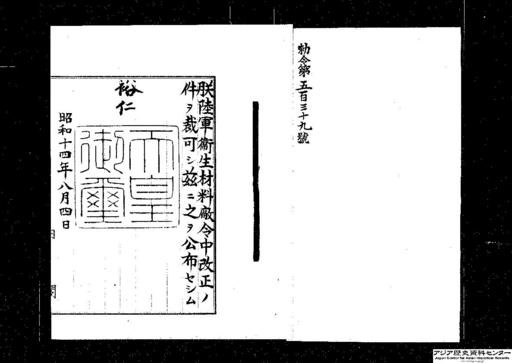 勅令第五百三十九號
朕陸軍衞生材料廠令中改正ノ
件ヲ裁可シ茲ニ之ヲ公布セシム
裕仁
天皇
御璽
昭和十四年八月四日
アジア歴史資料センター
Japan Center for Asian Historical Records